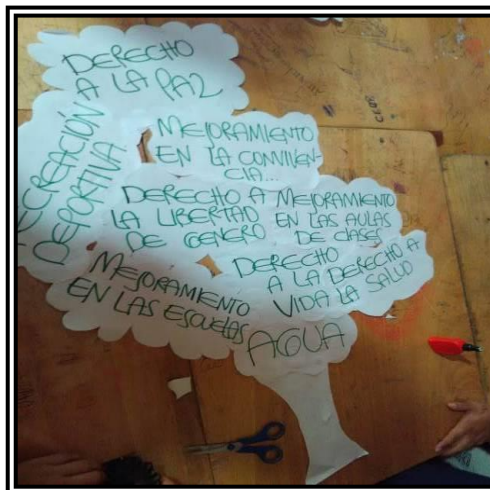 DERECHO
A LA PAZ
RECREACIÓN
DEPORTIVA
MEJORAMIENTO
EN LA CONVIVEN-
CIA...
DERECHO A
LA LIBERTAD
DE GENERO
MEJORAMIENTO
EN LAS AULAS
DE CLASES
DERECHO
A LA DERECHO A
VIDA LA SALUD
MEJORAMIENTO
EN LAS ESCUELAS
AGUA